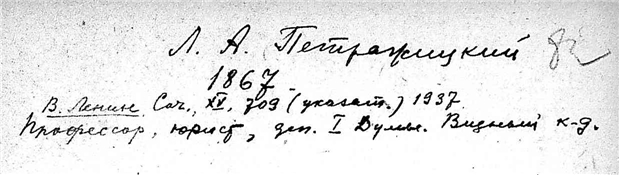 Л. А. Петражицкий
1867
В. Ленин. Соч., XV, 709 (указат.) 1937.
Профессор, юрист, деп. I Думы. Видный к-д.